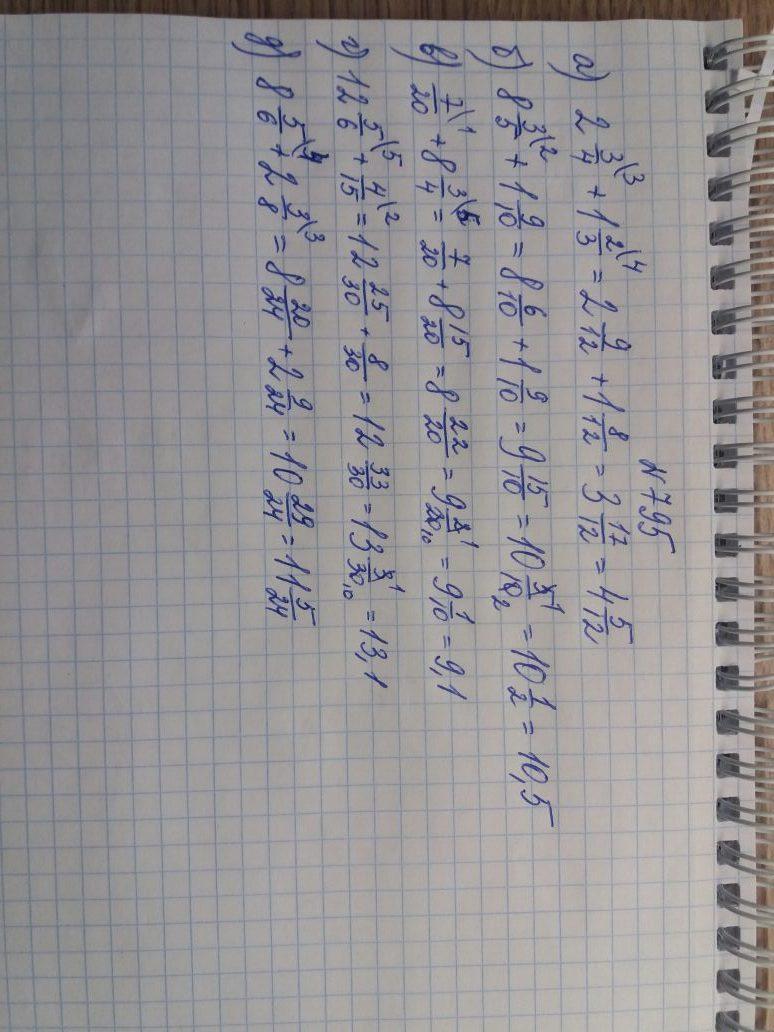 N 795
а) 2 3/4\3 + 1 2/3\4 = 2 9/12 + 1 8/12 = 3 17/12 = 4 5/12
б) 8 3/5\2 + 1 9/10 = 8 6/10 + 1 9/10 = 9 15/10 = 10 5/10 1 2 = 10 1/2 = 10,5
в) 7/20\1 + 8 3/4\5 = 7/20 + 8 15/20 = 8 22/20 = 9 2/20 1 10 = 9 1/10 = 9,1
г) 12 5/6\5 + 4/15\2 = 12 25/30 + 8/30 = 12 33/30 = 13 3/30 1 10 = 13,1
д) 8 5/6\4 + 2 3/8\3 = 8 20/24 + 2 9/24 = 10 29/24 = 11 5/24